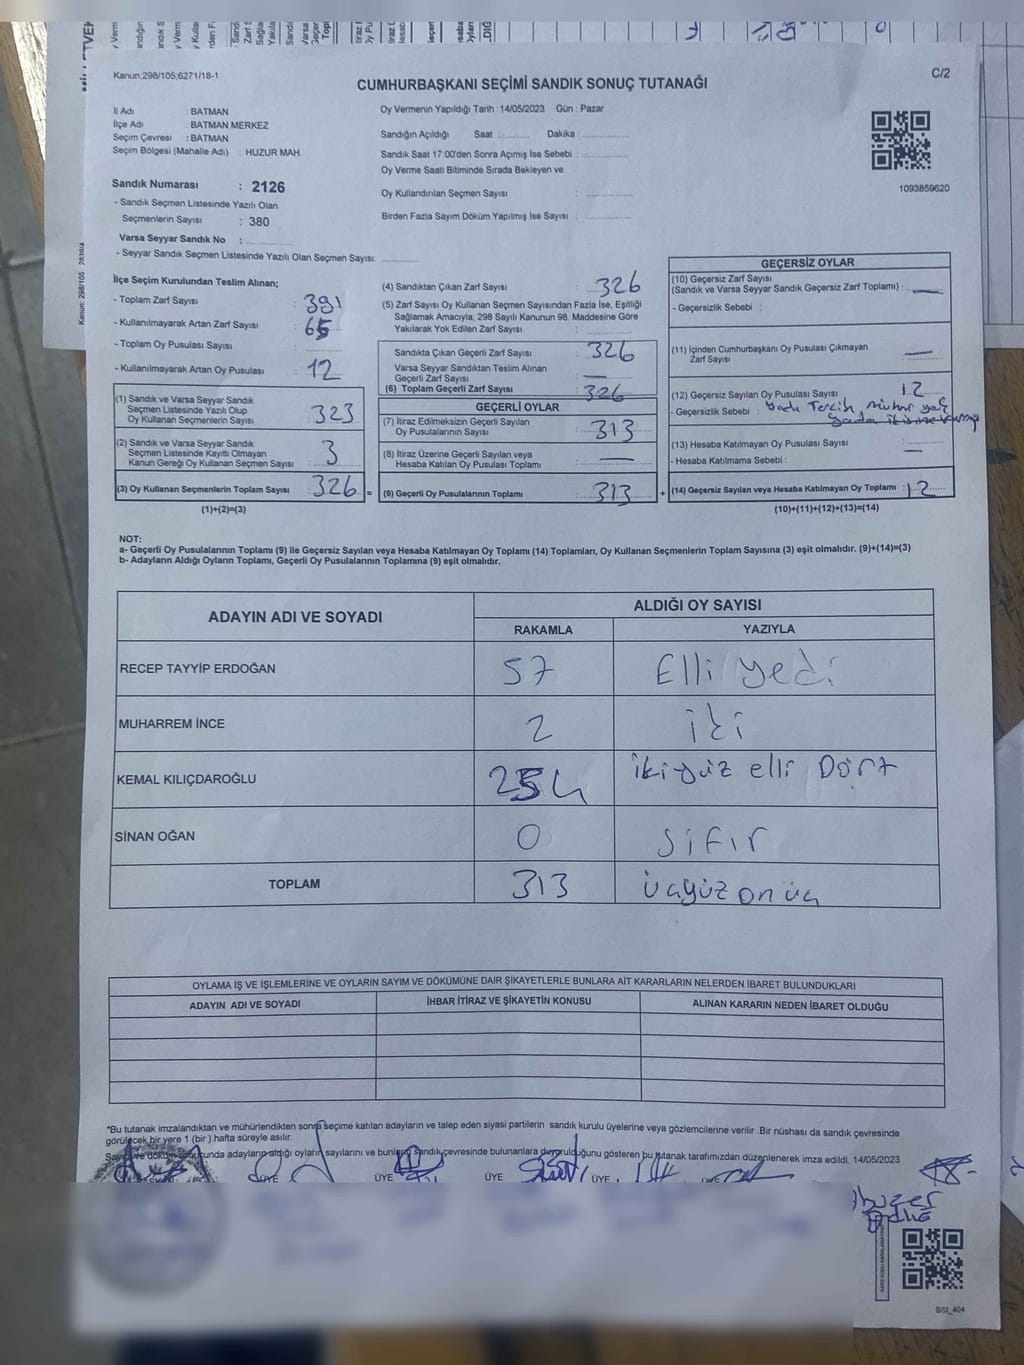 Kanun:298/105;6271/18-1
C/2
CUMHURBAŞKANI SEÇİMİ SANDIK SONUÇ TUTANAĞI
İl Adı BATMAN
İlçe Adı : BATMAN MERKEZ
Seçim Çevresi : BATMAN
Seçim Bölgesi (Mahalle Adı) : HUZUR MAH.
Sandık Numarası : 2126
- Sandık Seçmen Listesinde Yazılı Olan
Seçmenlerin Sayısı : 380
Varsa Seyyar Sandık No :
- Seyyar Sandık Seçmen Listesinde Yazılı Olan Seçmen Sayısı:
Oy Vermenin Yapıldığı Tarih : 14/05/2023 Gün : Pazar
Sandığın Açıldığı Saat Dakika :
Sandık Saat 17:00'den Sonra Açımış İse Sebebi :
Oy Verme Saati Bitiminde Sırada Bekleyen ve
Oy Kullandırılan Seçmen Sayısı :
Birden Fazla Sayım Döküm Yapılmış İse Sayısı :
1093859620
İlçe Seçim Kurulundan Teslim Alınan;
- Toplam Zarf Sayısı 391
- Kullanılmayarak Artan Zarf Sayısı 65
- Toplam Oy Pusulası Sayısı
- Kullanılmayarak Artan Oy Pusulası 12
(1) Sandık ve Varsa Seyyar Sandık
Seçmen Listesinde Yazılı Olup
Oy Kullanan Seçmenlerin Sayısı 323
(2) Sandık ve Varsa Seyyar Sandık
Seçmen Listesinde Kayıtlı Olmayan
Kanun Gereği Oy Kullanan Seçmen Sayısı 3
(3) Oy Kullanan Seçmenlerin Toplam Sayısı 326
(1)+(2)=(3)
(4) Sandıktan Çıkan Zarf Sayısı : 326
(5) Zarf Sayısı Oy Kullanan Seçmen Sayısından Fazla İse, Eşitliği
Sağlamak Amacıyla, 298 Sayılı Kanunun 98. Maddesine Göre
Yakılarak Yok Edilen Zarf Sayısı :
Sandıkta Çıkan Geçerli Zarf Sayısı : 326
Varsa Seyyar Sandıktan Teslim Alınan
Geçerli Zarf Sayısı : —
(6) Toplam Geçerli Zarf Sayısı : 326
GEÇERLİ OYLAR
(7) İtiraz Edilmeksizin Geçerli Sayılan
Oy Pusulalarının Sayısı : 313
(8) İtiraz Üzerine Geçerli Sayılan veya
Hesaba Katılan Oy Pusulası Toplamı : —
= (9) Geçerli Oy Pusulalarının Toplamı : 313
GEÇERSİZ OYLAR
(10) Geçersiz Zarf Sayısı
(Sandık ve Varsa Seyyar Sandık Geçersiz Zarf Toplamı) : —
- Geçersizlik Sebebi :
(11) İçinden Cumhurbaşkanı Oy Pusulası Çıkmayan
Zarf Sayısı : —
(12) Geçersiz Sayılan Oy Pusulası Sayısı : 12
- Geçersizlik Sebebi :
(13) Hesaba Katılmayan Oy Pusulası Sayısı : —
- Hesaba Katılmama Sebebi :
+ (14) Geçersiz Sayılan veya Hesaba Katılmayan Oy Toplamı : 12
(10)+(11)+(12)+(13)=(14)
NOT:
a- Geçerli Oy Pusulalarının Toplamı (9) ile Geçersiz Sayılan veya Hesaba Katılmayan Oy Toplamı (14) Toplamları, Oy Kullanan Seçmenlerin Toplam Sayısına (3) eşit olmalıdır. (9)+(14)=(3)
b- Adayların Aldığı Oyların Toplamı, Geçerli Oy Pusulalarının Toplamına (9) eşit olmalıdır.
ADAYIN ADI VE SOYADI ALDIĞI OY SAYISI
RAKAMLA YAZIYLA
RECEP TAYYİP ERDOĞAN 57 Elli yedi
MUHARREM İNCE 2 iki
KEMAL KILIÇDAROĞLU 254 ikiyüz elli Dört
SİNAN OĞAN 0 sıfır
TOPLAM 313 üçyüz on üç
OYLAMA İŞ VE İŞLEMLERİNE VE OYLARIN SAYIM VE DÖKÜMÜNE DAİR ŞİKAYETLERLE BUNLARA AİT KARARLARIN NELERDEN İBARET BULUNDUKLARI
ADAYIN ADI VE SOYADI İHBAR İTİRAZ VE ŞİKAYETİN KONUSU ALINAN KARARIN NEDEN İBARET OLDUĞU
*Bu tutanak imzalandıktan ve mühürlendikten sonra seçime katılan adayların ve talep eden siyasi partilerin sandık kurulu üyelerine veya gözlemcilerine verilir .Bir nüshası da sandık çevresinde
görülecek bir yere 1 (bir ) hafta süreyle asılır.
Sayım ve döküm sonucunda adayların aldığı oyların sayılarını ve bunların sandık çevresinde bulunanlara duyurulduğunu gösteren bu tutanak tarafımızdan düzenlenerek imza edildi. 14/05/2023
ÜYE ÜYE ÜYE ÜYE ÜYE
SSI_404